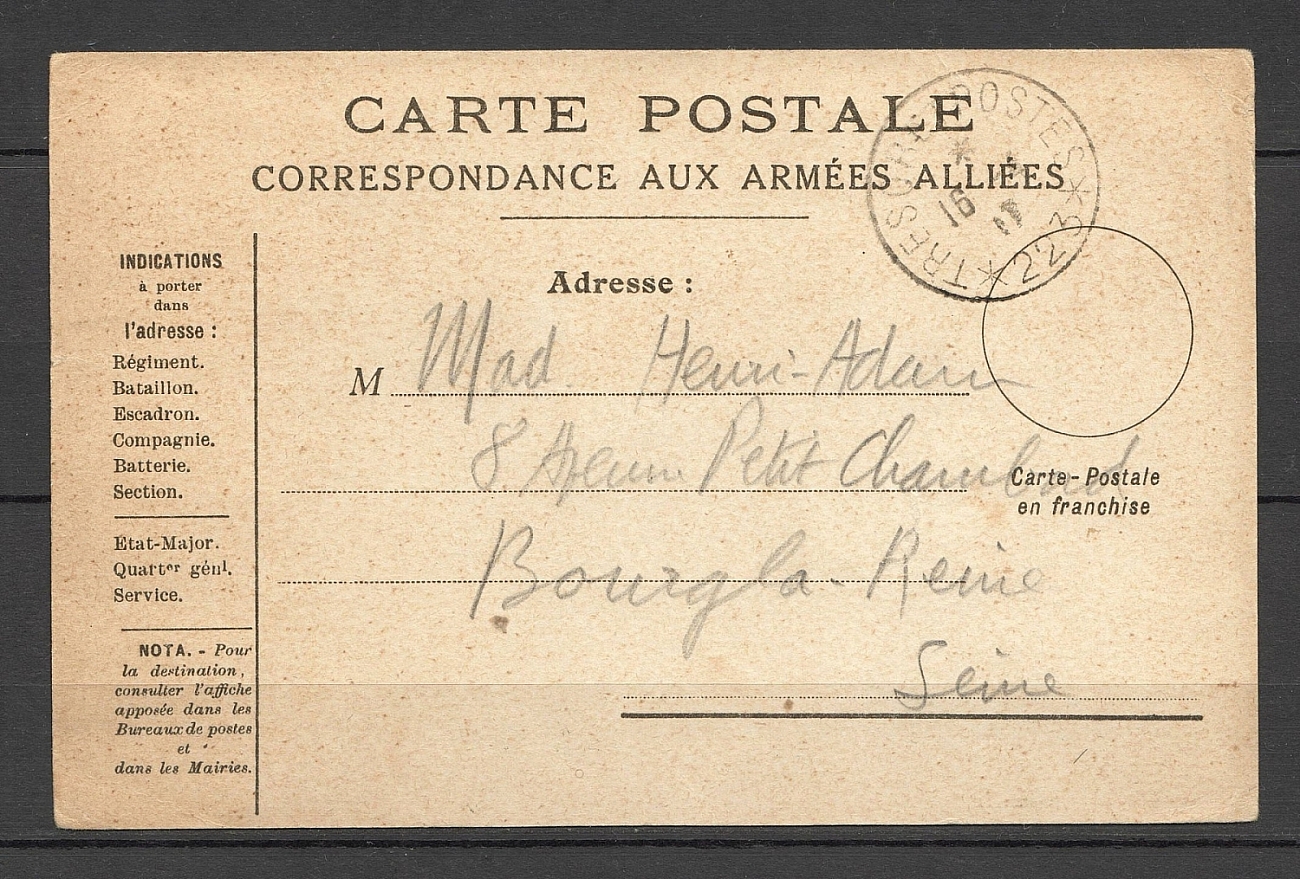 CARTE POSTALE
CORRESPONDANCE AUX ARMÉES ALLIÉES
TRESOR ET POSTES
* 223 *
16
INDICATIONS
à porter
dans
l'adresse :
Régiment.
Bataillon.
Escadron.
Compagnie.
Batterie.
Section.
État-Major.
Quartᵉʳ génˡ.
Service.
NOTA. - Pour
la destination,
consulter l'affiche
apposée dans les
Bureaux de postes
et
dans les Mairies.
Adresse :
M Mad Henri-Adam
8 Avenue Petit
Bourg la-Reine
Seine
Carte-Postale
en franchise